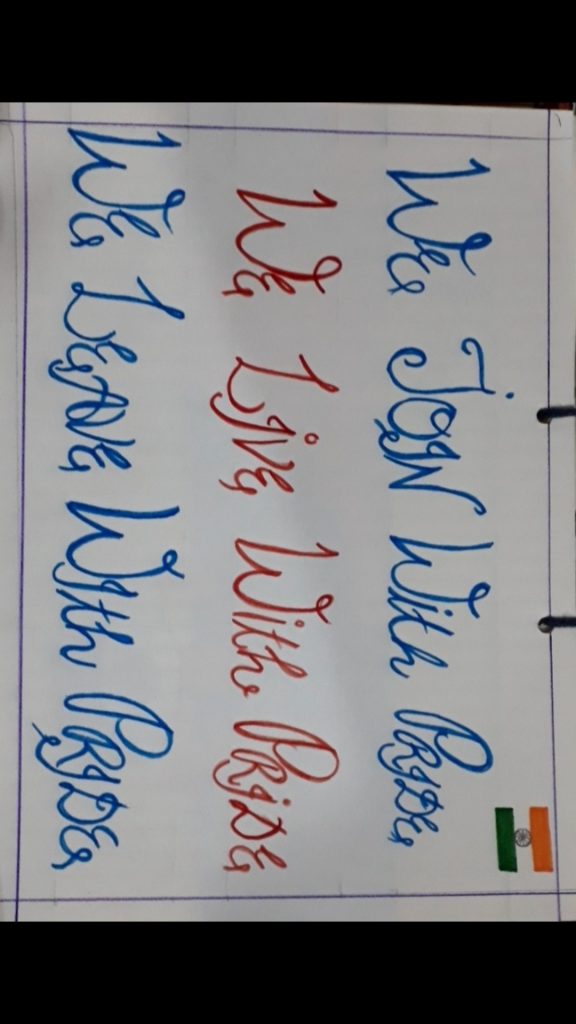 We Join With Pride
We Live With Pride
We Leave With Pride